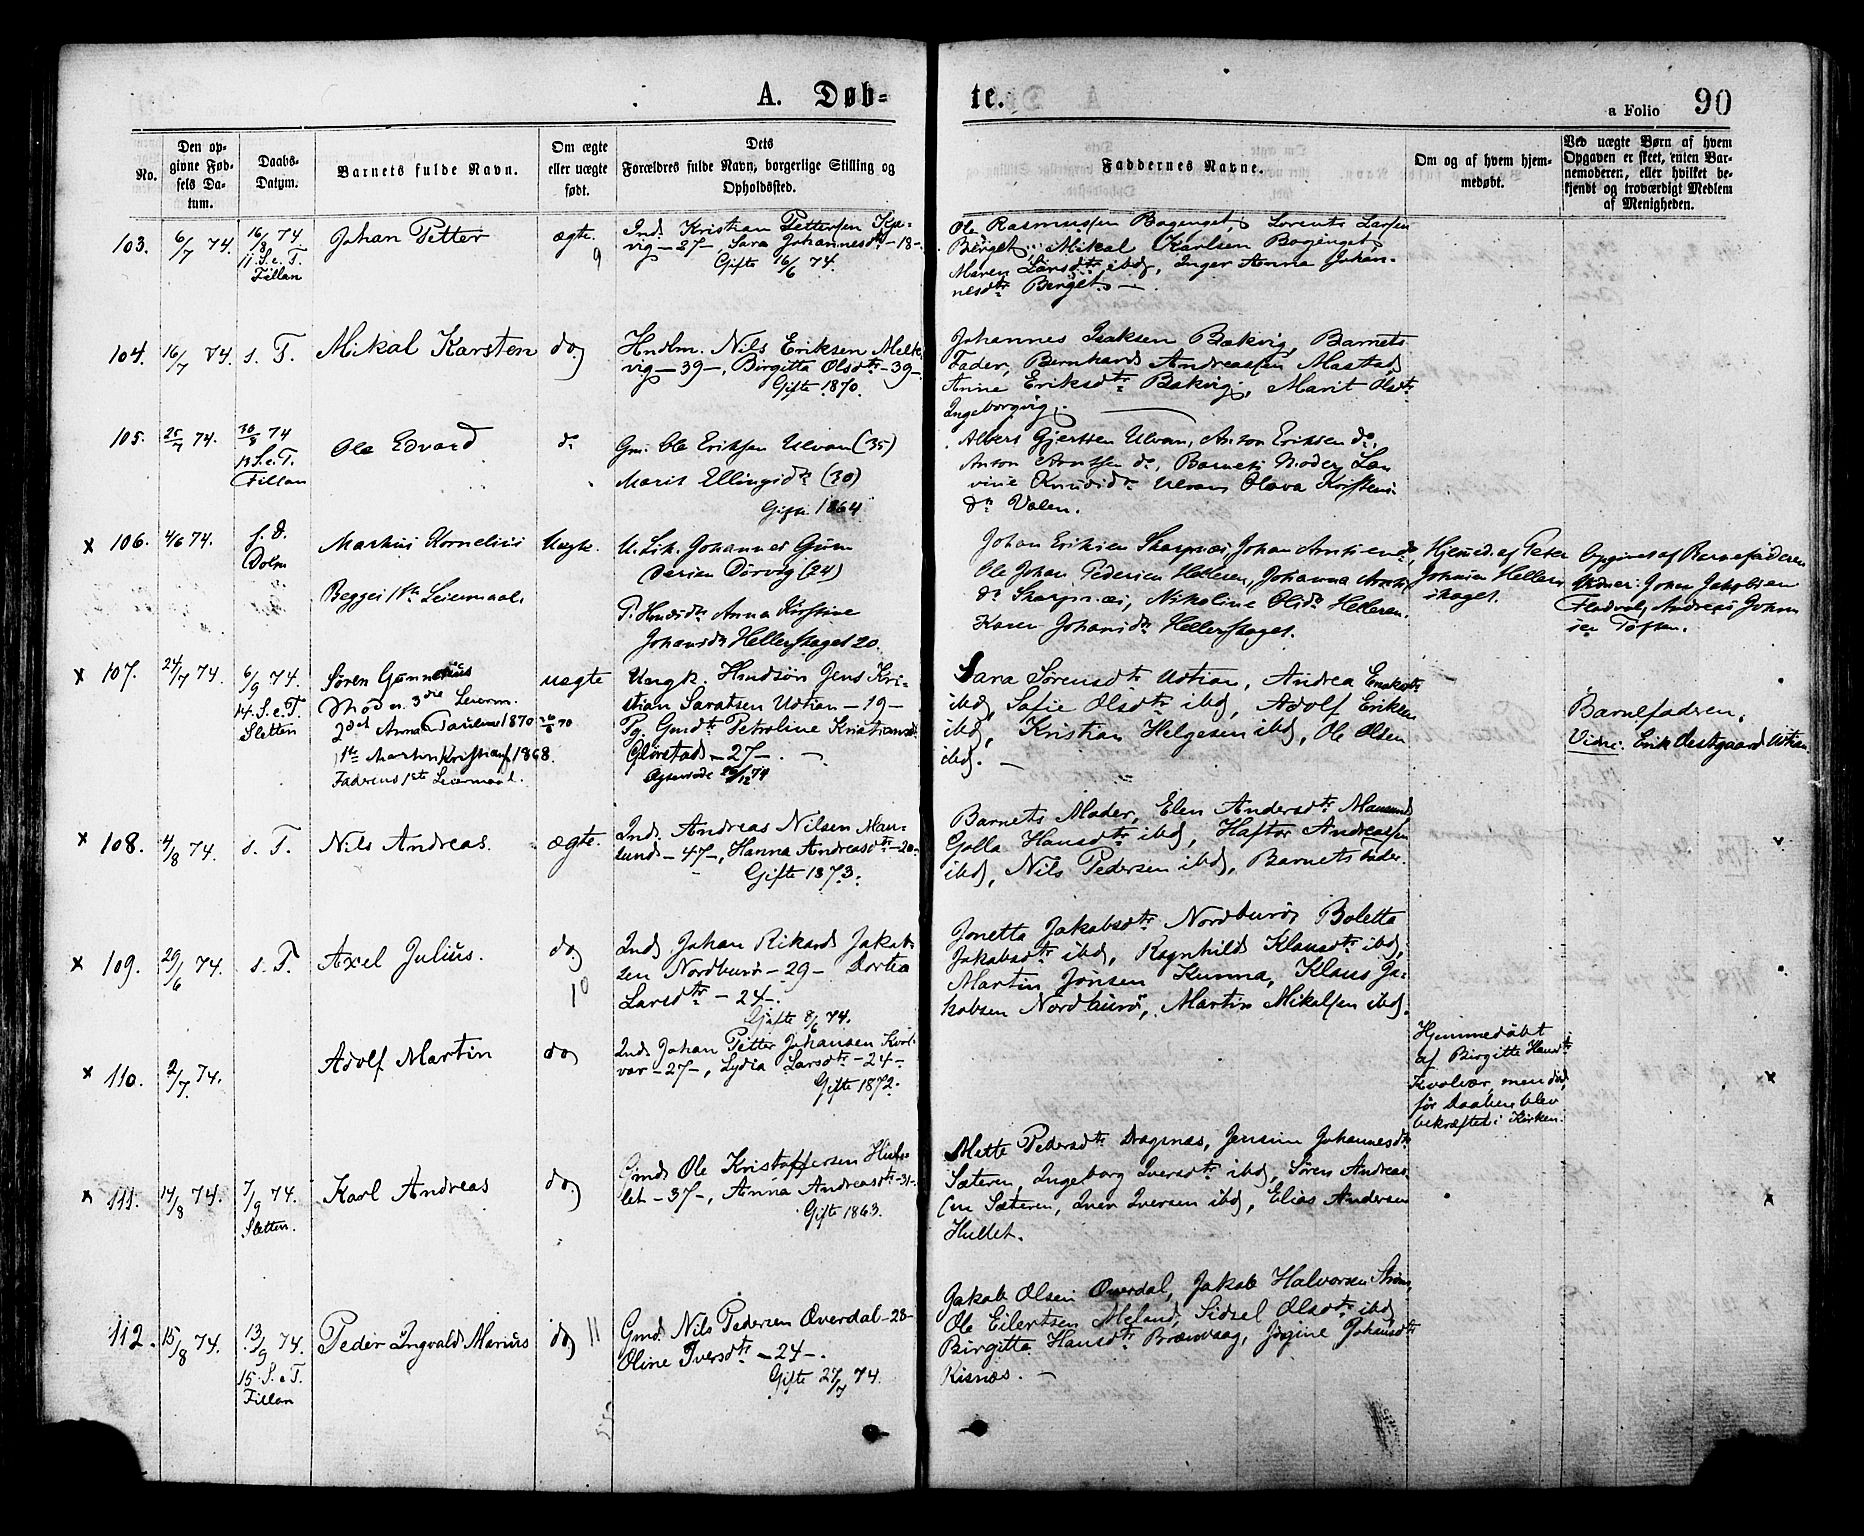 A. Døb=
te.
a Folio 90
No.
Den op-
givne Fød-
sels Da-
tum.
Daabs-
Datum.
Barnets fulde Navn.
Om ægte
eller uægte
født.
Dets
Forældres fulde Navn, borgerlige Stilling og
Opholdssted.
Faddernes Navne.
Om og af hvem hjem-
medøbt.
Ved uægte Børn af hvem
Opgaven er skeet, enten Bar-
nemoderen, eller hvilket be-
kjendt og troværdigt Medlem
af Menigheden.
103.
6/7 74.
16/8 74
11 S. e. T.
Fillan
Johan Petter
ægte.
9
Ind. Kristian Pettersen
vig - 27 -, Sara Johannesdtr - 18 -.
Gifte 16/6 74.
Ole Rasmussen Bogenget, Lorents Larsen
Berget, Mikal Karlsen Bogenget,
Maren Larsdtr ibd, Inger Anna Johan-
nesdtr Berget. -
104.
16/7 74.
s. T.
Mikal Karsten
do
Hndlm. Nils Eriksen Melk-
vig - 39 -, Birgitta Olsdtr - 39 -.
Gifte 1870.
Johannes Isaksen Bækvig, Barnets
Fader, Bernhard Andreassen Mastad,
Anne Eriksdtr Bækvig, Marit Olsdtr
Ingeborgvig.
105.
25/7 74.
30/8 74
13 S. e. T.
Fillan
Ole Edvard
do
Gm. Ole Eriksen Ulvan (35)
Marit Ellingsdtr (30)
Gifte 1864
Albert Gjertsen Ulvan, Anton Eriksen do,
Anton Arntsen do, Barnets Moder, Lau
vine Knudsdtr Ulvan, Olava Kristens-
dtr Valen.
x 106.
4/6 74.
s. D.
Dolm
Markus Kornelius
Begges 1ste Leiermaal.
Uægte.
U. Johannes
Dørvig (24)
P. Hmdsdtr Anna Kirstine
Johansdtr Hellerskaget 20.
Johan Eriksen Skarpnæs, Johan Arntsen do,
Ole Johan Pedersen Helleren, Johanna Arnts-
dtr Skarpnæs, Nikoline Olsdtr Helleren.
Karen Johansdtr Hellerskaget.
Hjemd. af Peter
Johnsen Heller
skaget.
Opgivet af Barnefaderen
Vidner: Johan Jakobsen
Fladval, Andreas Johan
sen Toften.
x 107.
24/7 74.
6/9 74.
14. S. e. T.
Sletten
Søren Gunnerius
Mod n. 3die Leierm.
2det Anna Pauline 1870
1ste Morten Kristian 1868.
Faderens 1ste Leiermaal.
uægte
Ungk. Hmdsøn Jens Kri-
stian Saratsen Udtian - 19 -
Pg. Gmdtr Petroline Kristiansdtr
Glørstad - 27 -. -
Sara Sørensdtr Udtian, Andrea Enoksdtr
ibd, Sofie Olsdtr ibd, Adolf Eriksen
ibd, Kristian Helgesen ibd, Ole Olsen
ibd. -
Barnefadren.
Vidne: Erik Vestgaard Udtian.
x 108.
4/8 74.
s. T.
Nils Andreas.
ægte.
Ind. Andreas Nilsen Mau-
sund - 47 -, Hanna Andreasdtr - 20 -
Gifte 1873.
Barnets Moder, Elen Andersdtr Mausund,
Golla Hansdtr ibd, Haftor Andreassen
ibd, Nils Pedersen ibd, Barnets Fader.
x 109.
29/6 74.
s. T.
Axel Julius.
do
10
Ind. Johan Rikard Jakob-
sen Nordburø - 29 - Dortea
Larsdtr - 24 -.
Gifte 8/6 74.
Jonetta Jakobsdtr Nordburø, Boletta
Jakobsdtr ibd, Ragnhild Klausdtr ibd,
Martin Jonsen Kunna, Klaus Ja-
kobsen Nordburø, Martin Mikalsen ibd.
x 110.
2/7 74.
Adolf Martin
do
Ind. Johan Petter Johansen Kvol-
vær - 27 -, Lydia Larsdtr - 24 -
Gifte 1872.
Hjemmedøbt
af Birgitte Hansdtr
Kvolvær, men død
før Daaben blev
bekræftet i Kirken.
x
x 111.
14/8 74.
7/9 74.
Sletten.
Karl Andreas
do
Gmd Ole Kristoffersen Hul-
let - 37 -, Anna Andreasdtr - 31 -
Gifte 1863.
Mette Pedersdtr Dragsnæs, Jensine Johannesdtr
Sæteren, Ingeborg Iversdtr ibd, Søren Andreas-
sen Sæteren, Iver Iversen ibd, Elias Andersen
Hullet.
x
112.
15/8 74.
13/9 74.
15. S. e. T.
Fillan
Peder Ingvald Marius
do
11
Gmd. Nils Pedersen Overdal - 28 -
Oline Iversdtr - 24 -.
Gifte 27/7 74.
Jakob Olsen Overdal, Jakob Halvorsen Strøm,
Ole Eilertsen Meland, Sidsel Olsdtr ibd
Birgitte Hansdtr Brænvaag, Jørgine Johansdtr
Risnæs. -